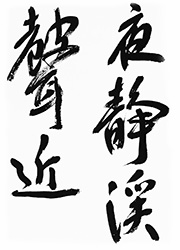 夜静溪
聲近